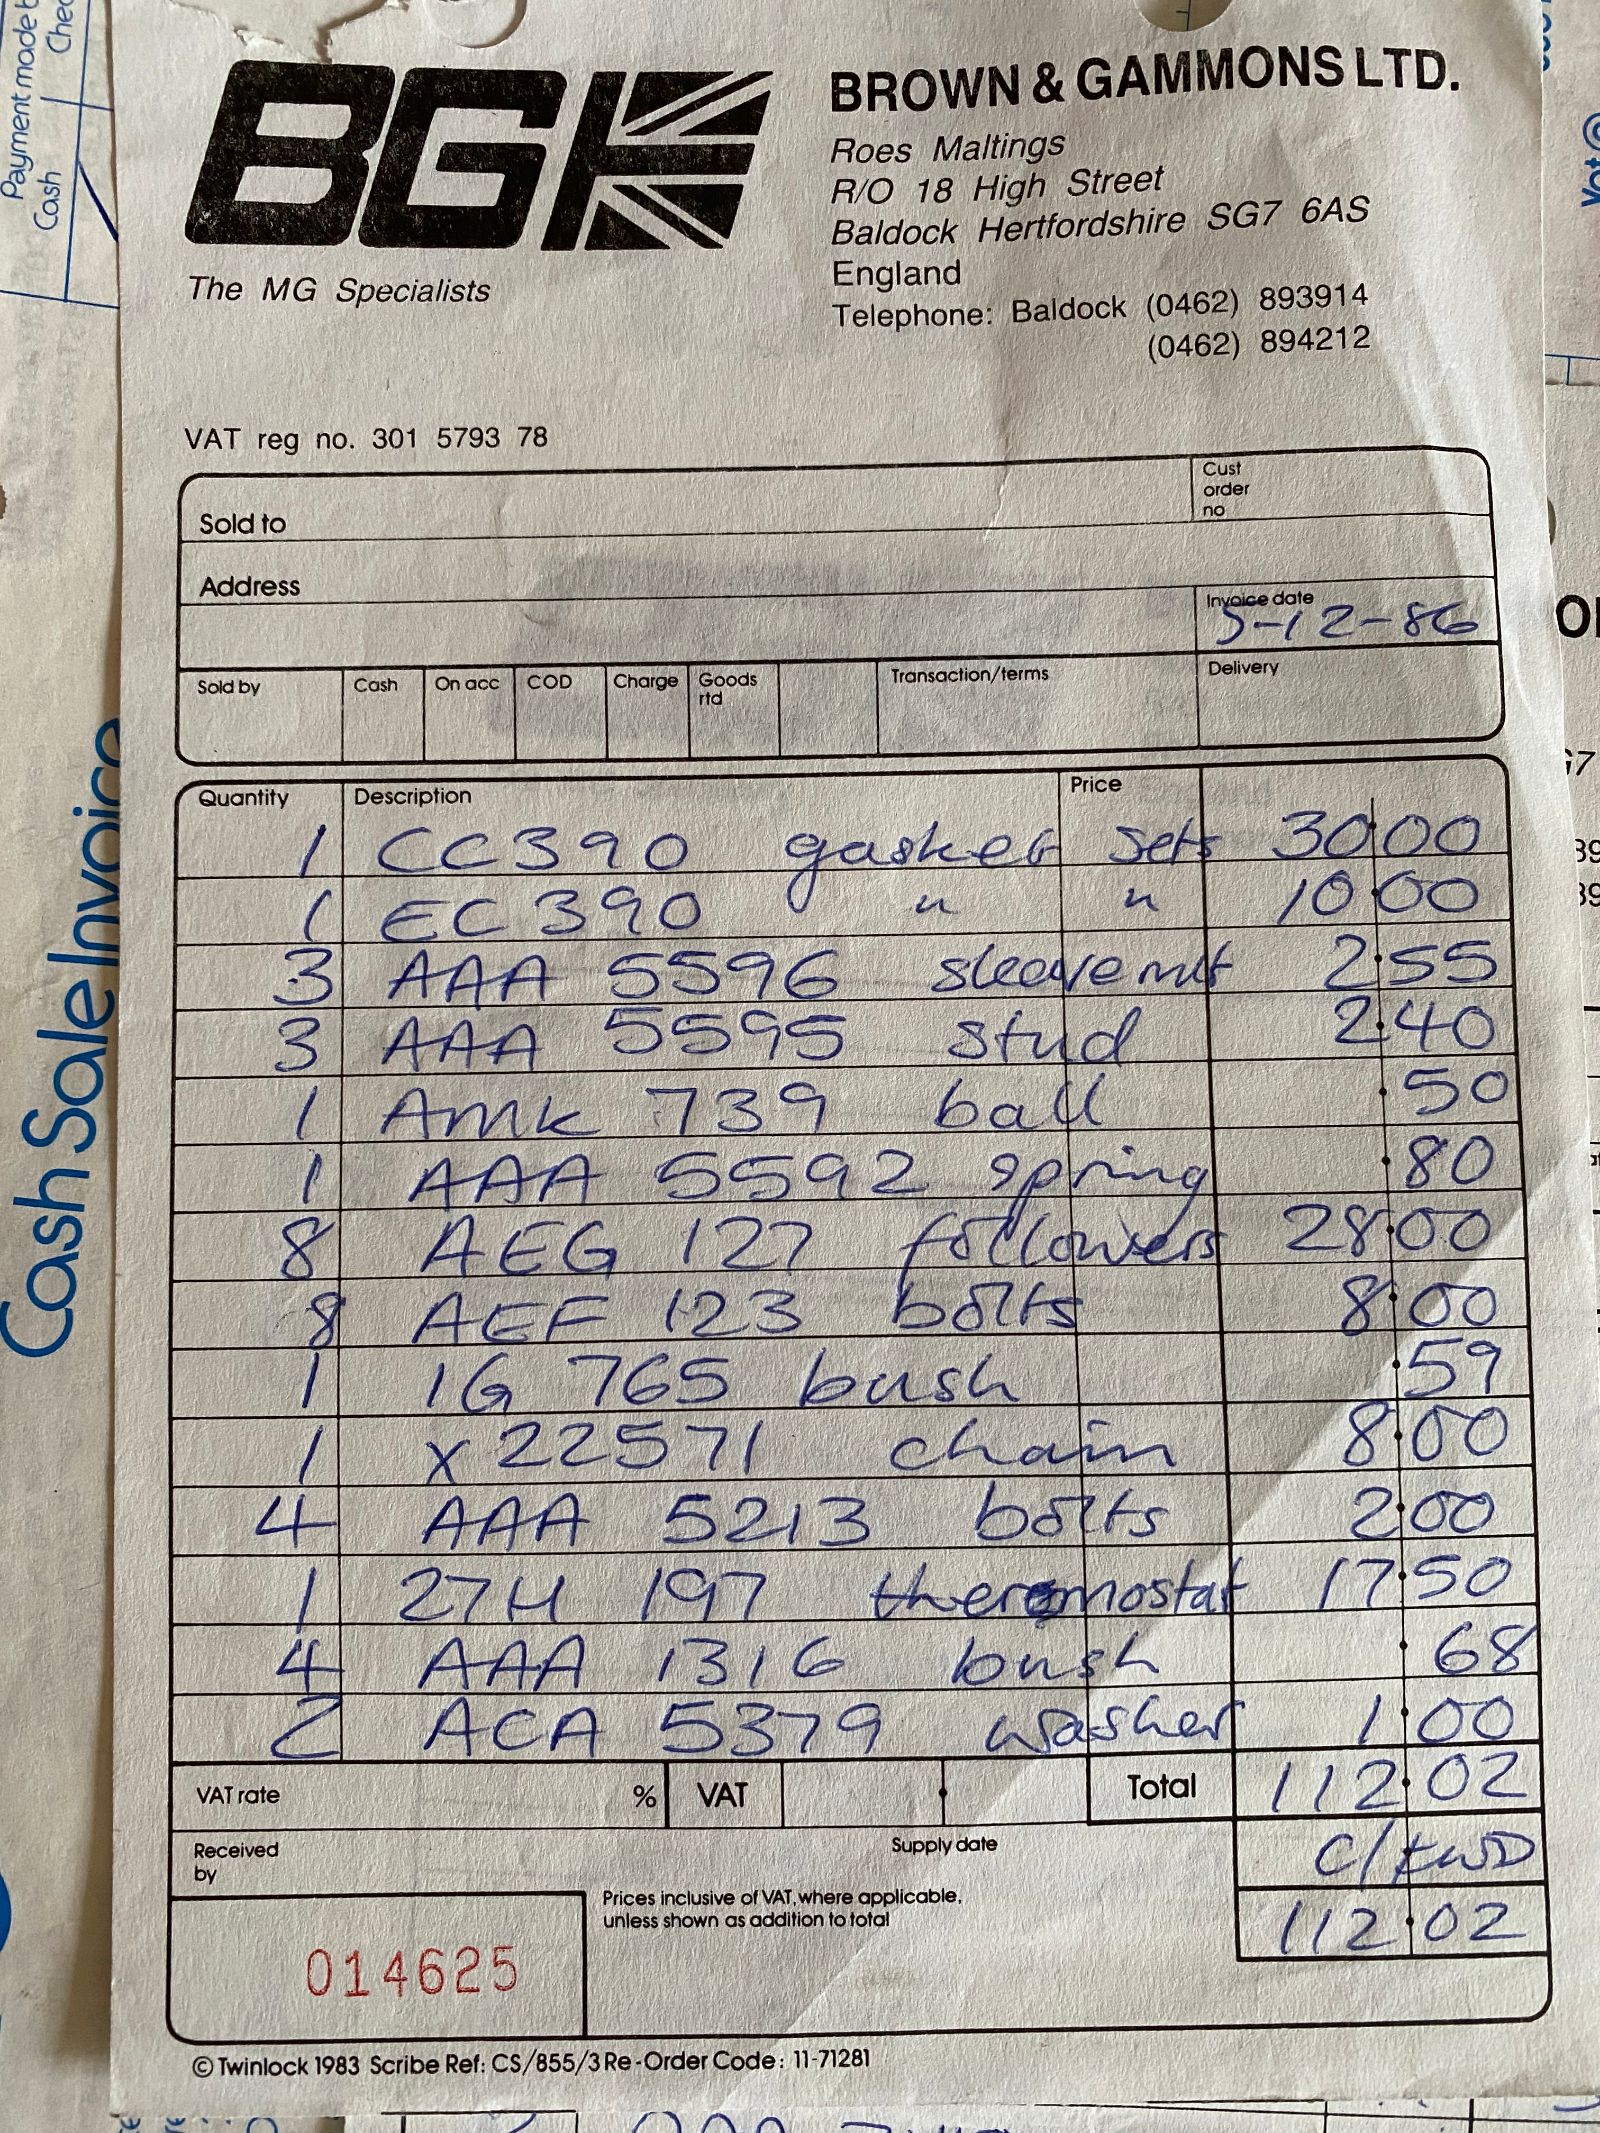 BG
BROWN & GAMMONS LTD.
Roes Maltings
R/O 18 High Street
Baldock Hertfordshire SG7 6AS
England
Telephone: Baldock (0462) 893914
(0462) 894212
The MG Specialists
VAT reg no. 301 5793 78
Sold to
Cust order no
Address
Invoice date
5-12-86
Sold by Cash On acc COD Charge Goods rtd Transaction/terms Delivery
Quantity Description Price
1 CC390 gasket sets 30.00
1 EC390 " " 10.00
3 AAA 5596 sleevenut 2.55
3 AAA 5595 stud 2.40
1 AMK 739 ball .50
1 AAA 5592 spring .80
8 AEG 127 followers 28.00
8 AEF 123 bolts 8.00
1 1G 765 bush .59
1 x 22571 chain 8.00
4 AAA 5213 bolts 2.00
1 27H 197 thermostat 17.50
4 AAA 1316 bush .68
2 ACA 5379 washer 1.00
VAT rate % VAT Total 112.02
Received by
Supply date
C/FWD
Prices inclusive of VAT, where applicable,
unless shown as addition to total
112.02
014625
© Twinlock 1983 Scribe Ref: CS/855/3 Re-Order Code: 11-71281
Payment made
Cash
Cash Sale Invoice